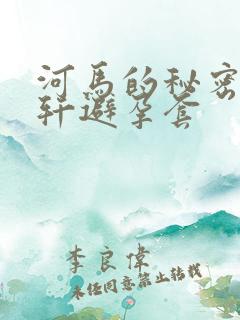 河马的秘密
轩避孕套
李良伟
未经同意禁止转载